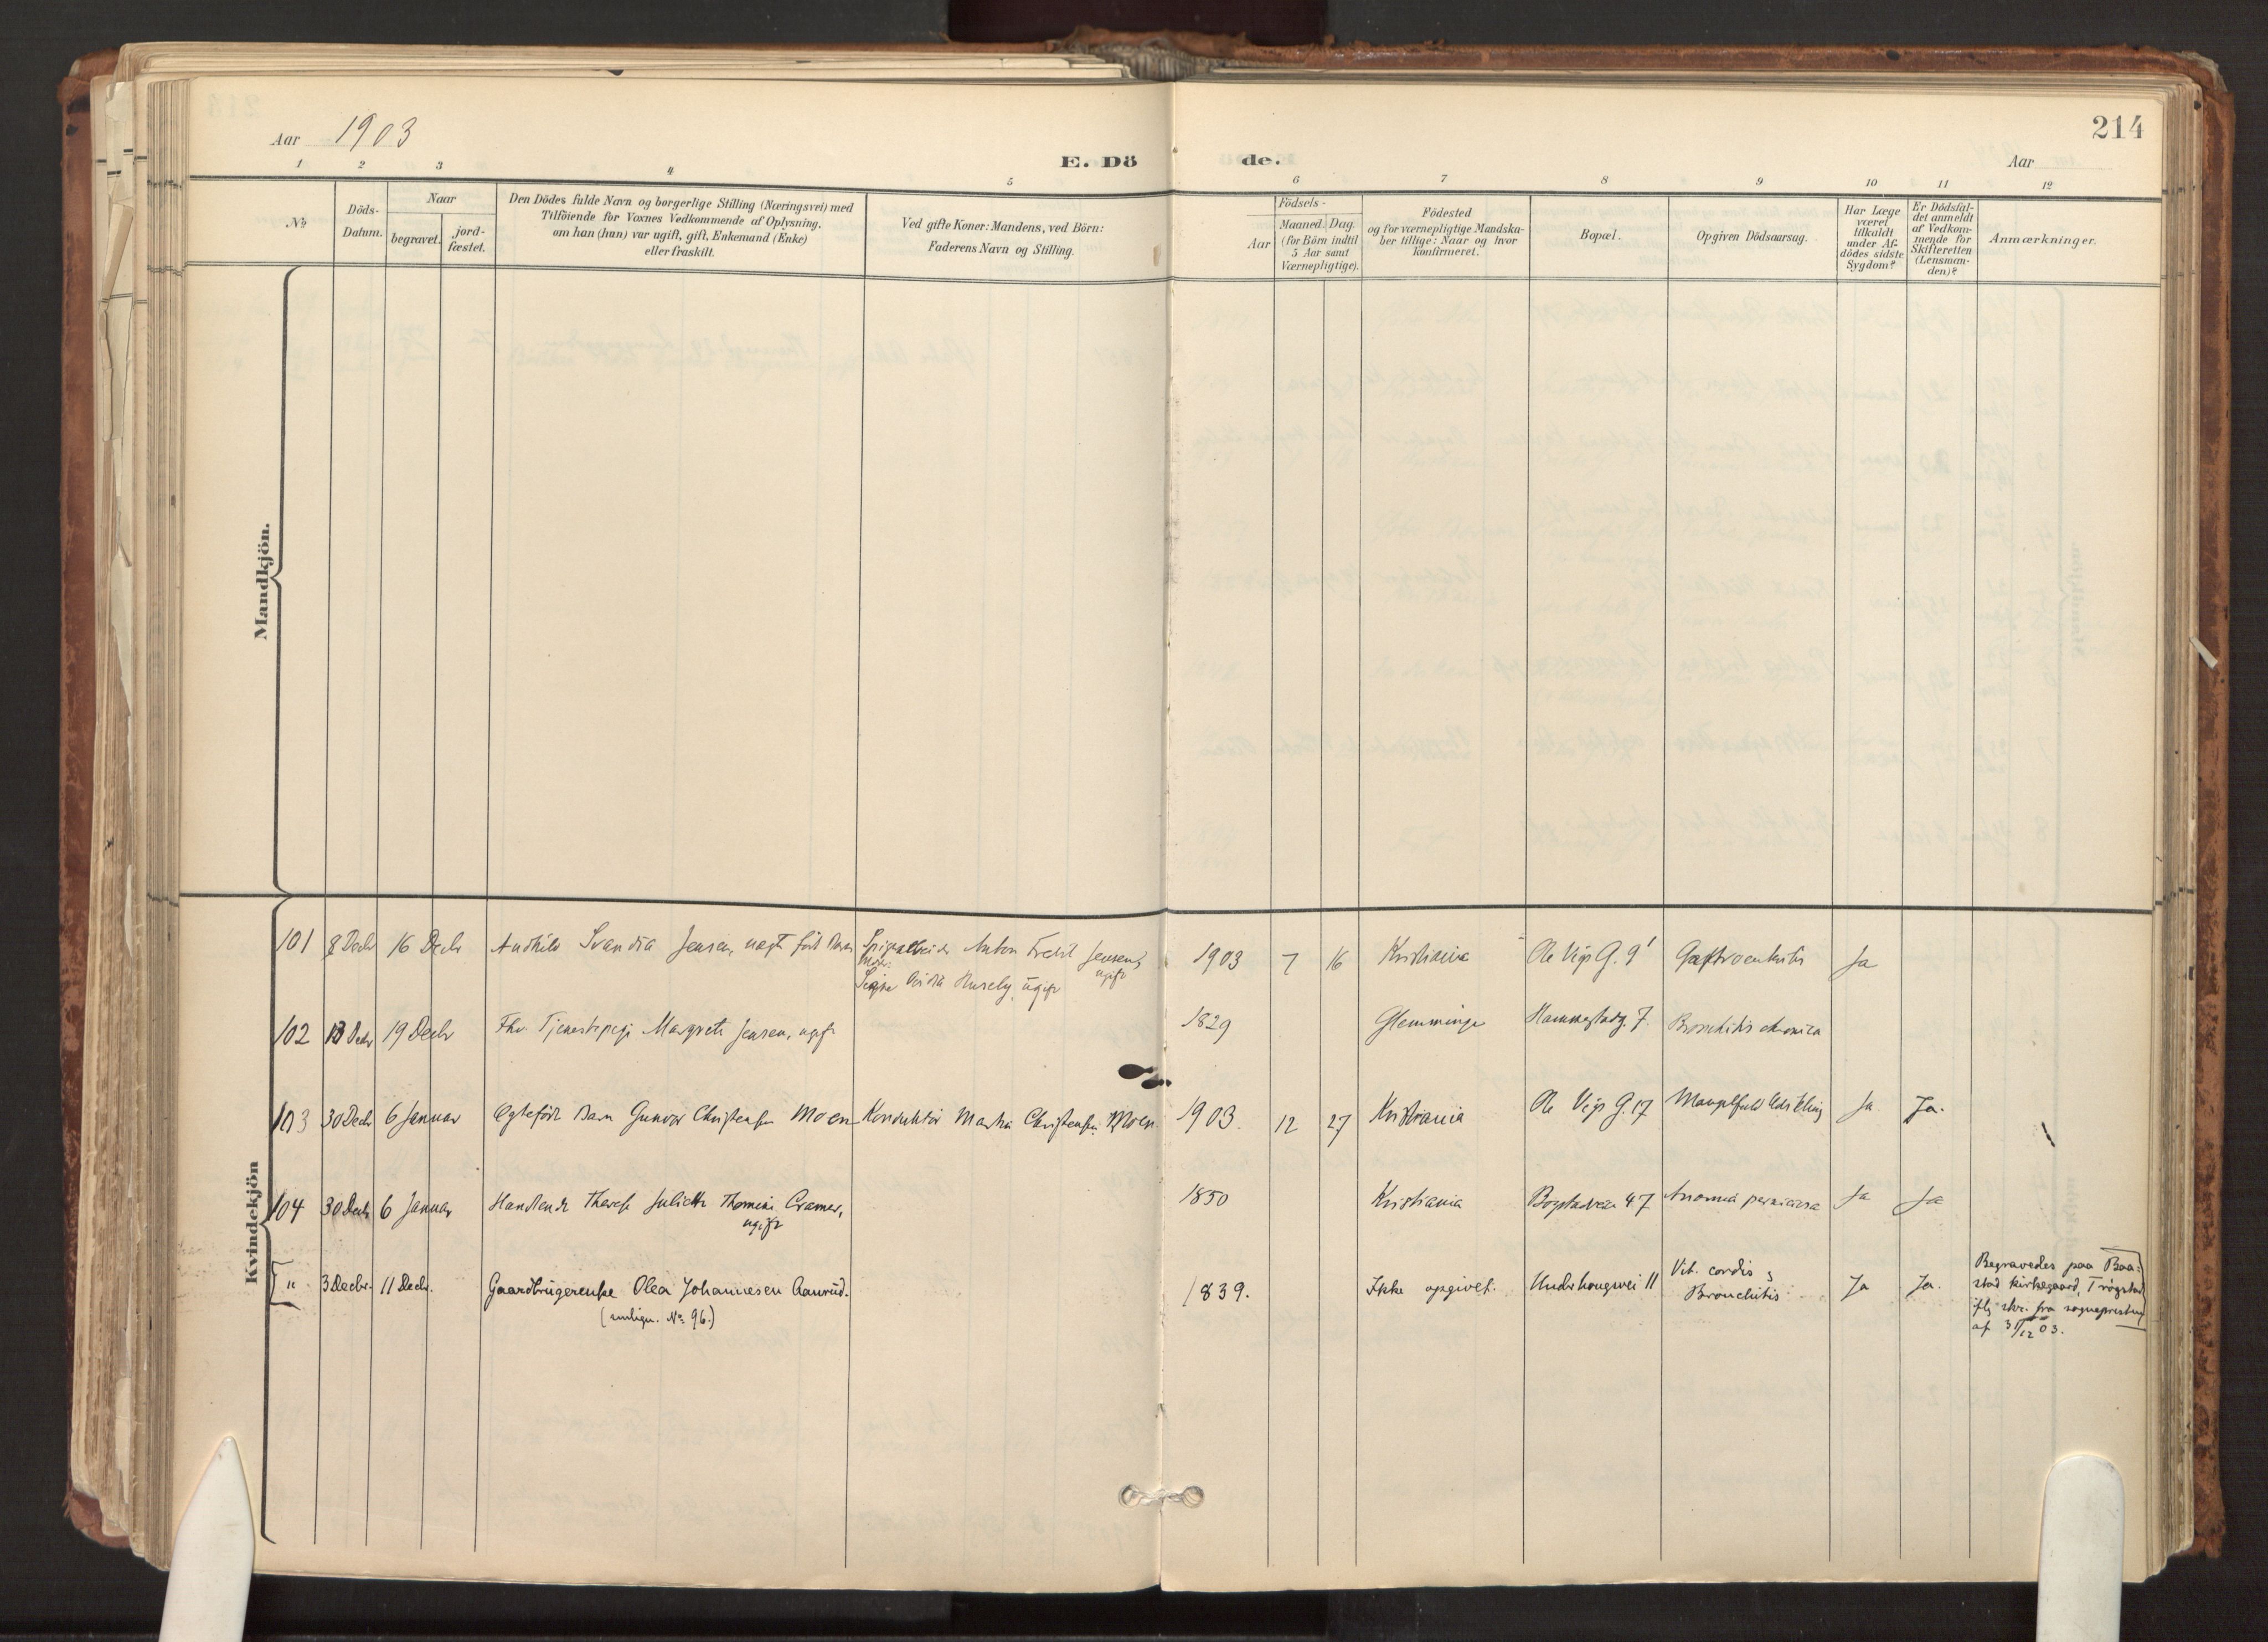 214
Aar 1903
E. Dö de.
Aar
1 2 3 4 5 6 7 8 9 10 11 12
No.
Döds-
Datum.
Naar
begravet.
jord-
fæstet.
Den Dödes fulde Navn og borgerlige Stilling (Næringsvei) med
Tilföiende for Voxnes Vedkommende af Oplysning,
om han (hun) var ugift, gift, Enkemand (Enke)
eller fraskilt.
Ved gifte Koner: Mandens, ved Börn:
Faderens Navn og Stilling.
Födsels-
Aar
Maaned. Dag.
(for Börn indtil
5 Aar samt
Værnepligtige).
Födested
og for værnepligtige Mandska-
ber tillige: Naar og hvor
konfirmeret.
Bopæl.
Opgiven Dödsaarsag.
Har Læge
været
tilkaldt
under Af-
dödes sidste
Sygdom?
Er Dödsfal-
det anmeldt
af Vedkom-
mende for
Skifteretten
(Lensman-
den)?
Anmærkninger.
Mandkjön.
Kvindekjön
101 8 Decbr 16 Decbr Jensen, uægte födt Barn Anton Jensen, 1903 7 16 Kristiania Ole Vigs G. 9 Gastroenteritis Ja
Moder:
ugift
Signe ugift
102 18 Decbr 19 Decbr Fhv. Tjenestepige Margrete Jensen, ugift 1829 Glemminge Hammerstadg. 7 Bronchitis chronica
103 30 Decbr 6 Januar Ægtefödt Barn Gunvor Christensen Moen Konduktör Martin Christensen Moen 1903. 12 27 Kristiania Ole Vigs G. 17 Mangelfuld Udvikling Ja Ja.
104 30 Decbr 6 Januar Handlende Therese Juliette Thomine Cramer, 1850 Kristiania Bogstadveien 47 Anæmia perniciosa Ja Ja
ugift
" 3 Decbr. 11 Decbr. Gaardbrugerenke Olea Johannesen Aamrud. 1839. Ikke opgivet. Underhaugsvei 11 Vit. cordis
Bronchitis Ja Ja.
(smlign. No. 96.)
Begravedes paa Baa-
stad kirkegaard, Trögstad
iflg skr. fra sognepresten
af 31/12 03.